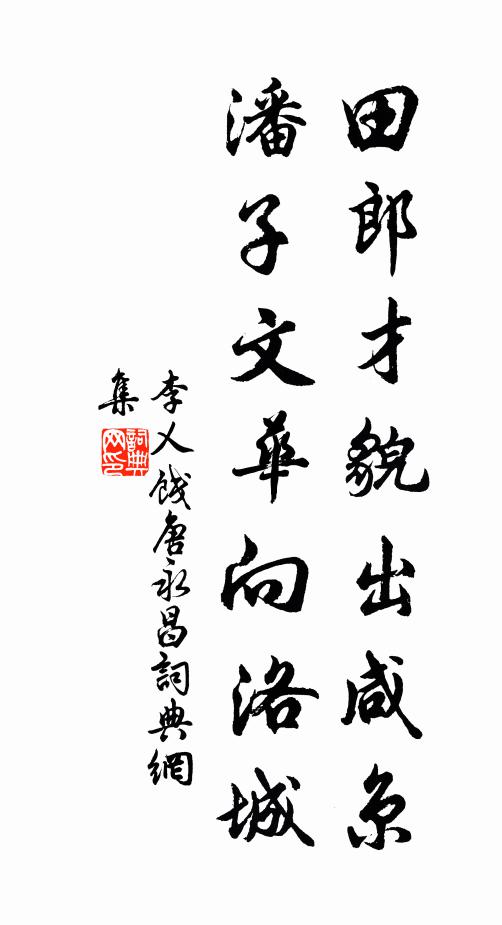 田郎才貌出咸京
潘子文華向洛城
李乂餞唐永昌詞典網
集
詞典
网印